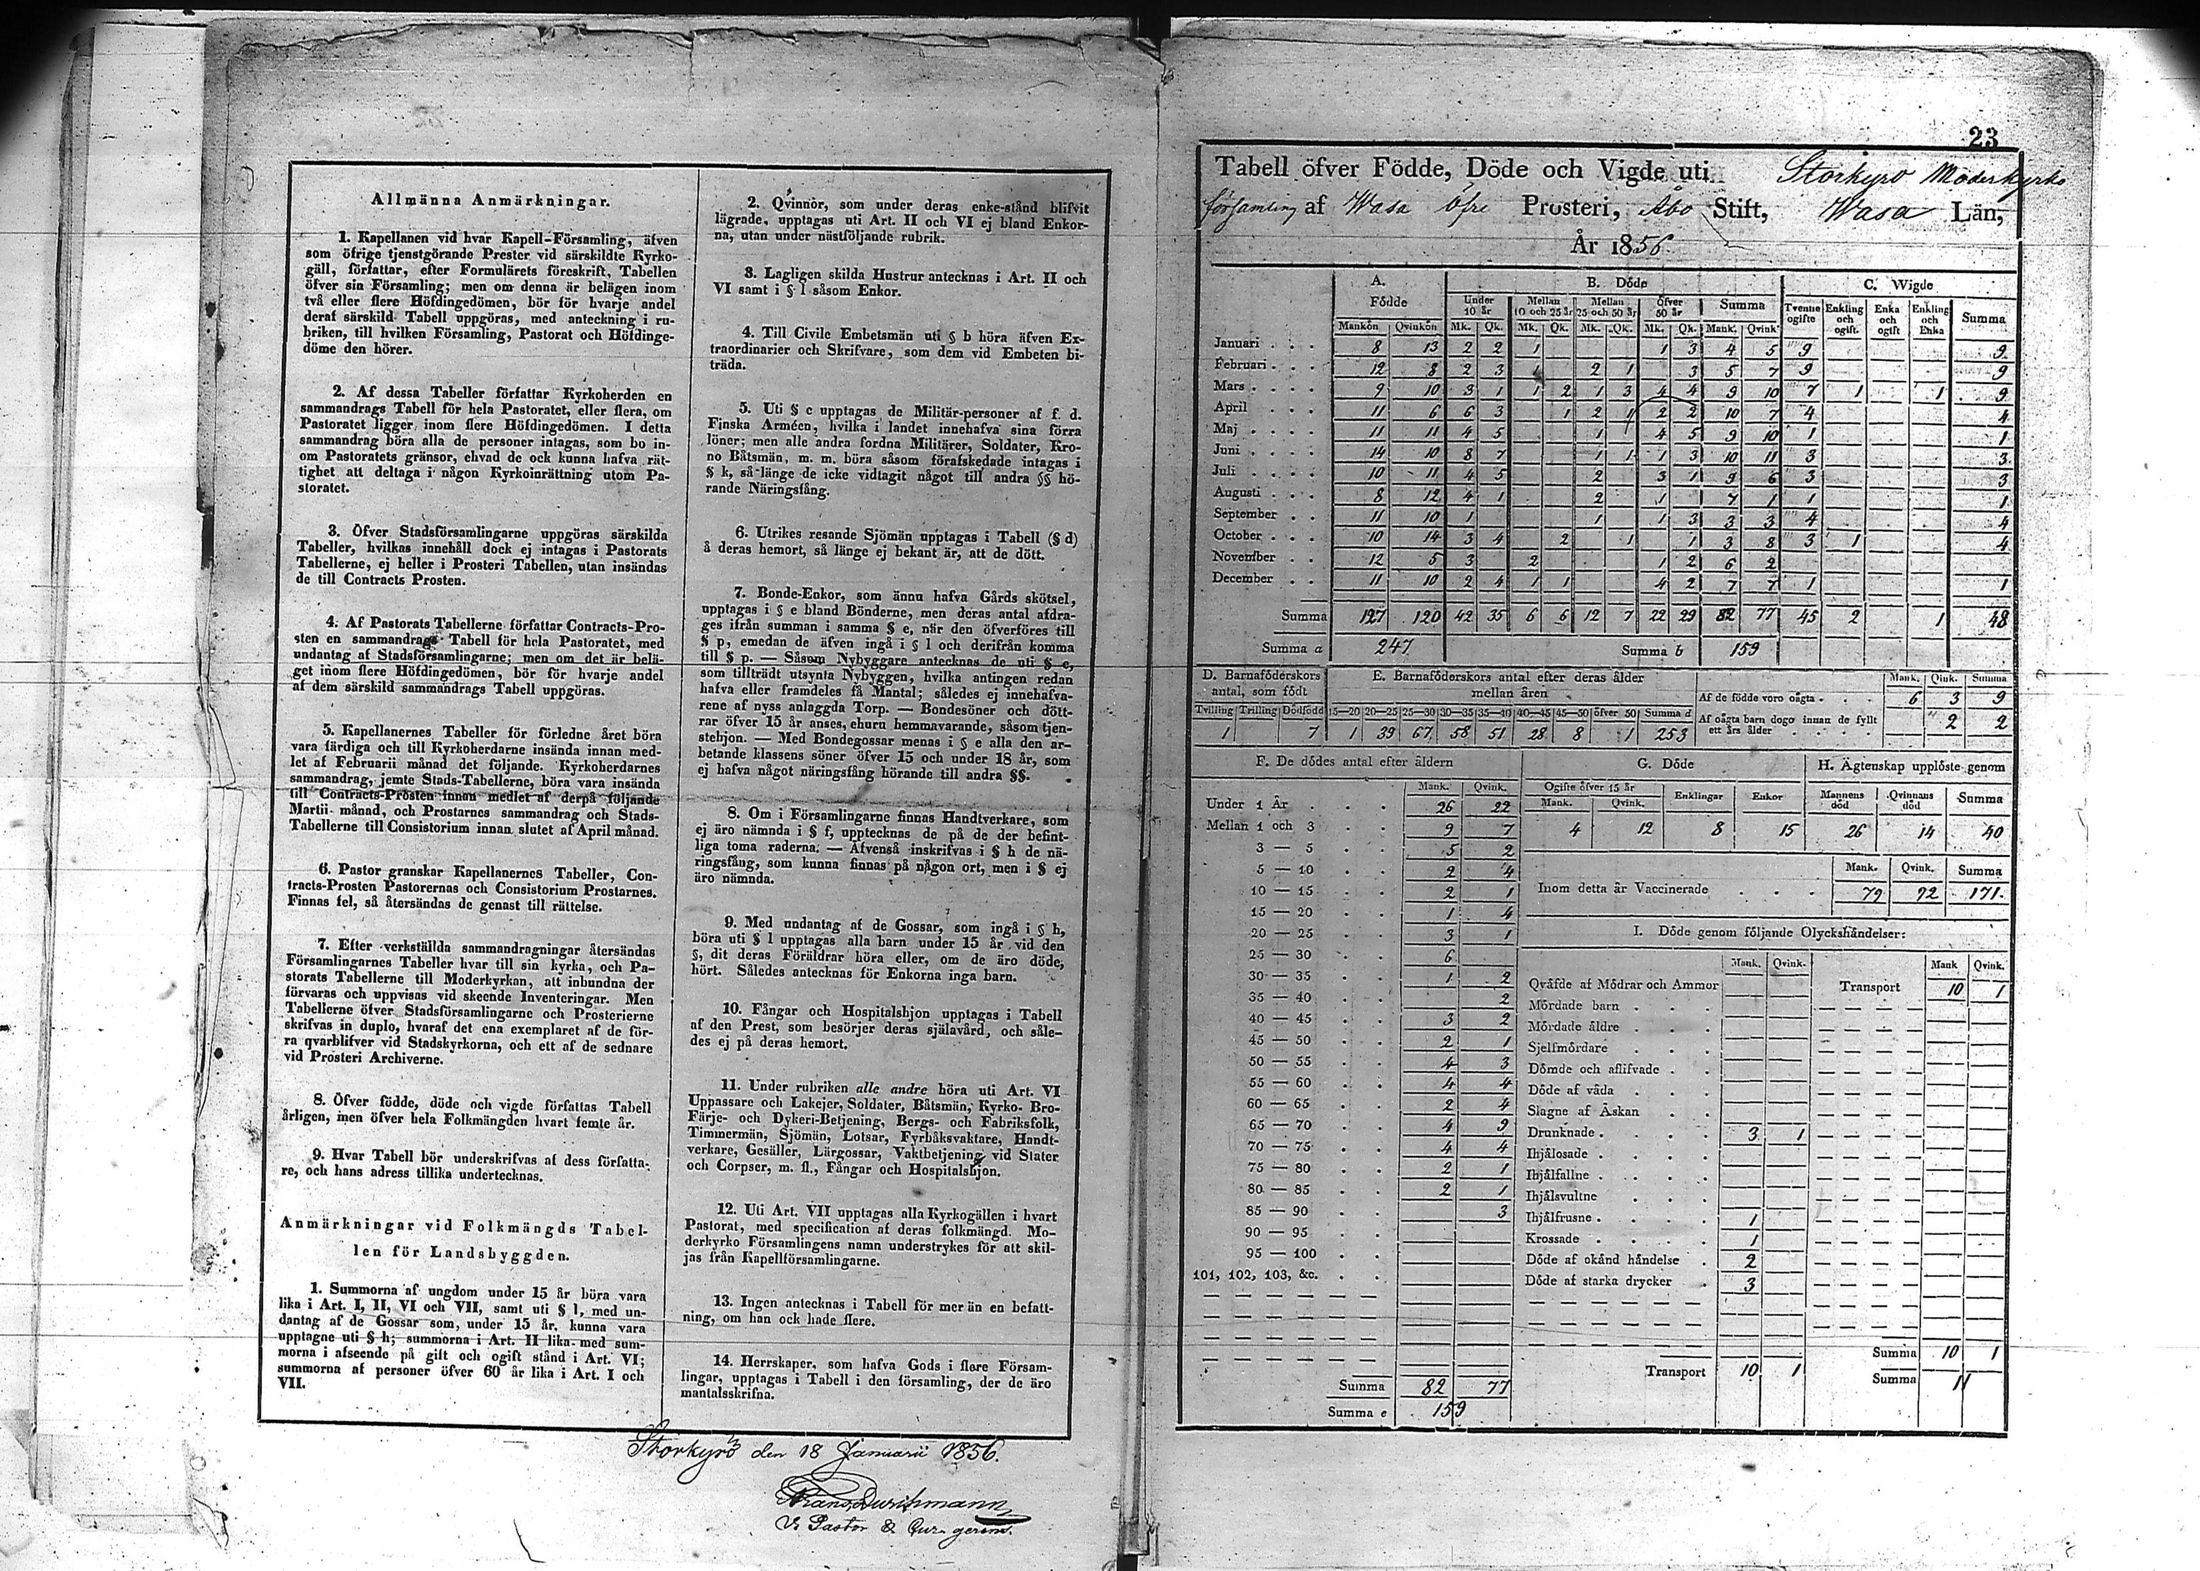 Allmänna Anmärkningar.
1. Kapellanen vid hvar Kapell-Församling, äfven
som öfrige tjenstgörande Prester vid särskildte Kyrko-
gäll, författar, efter Formulärets föreskrift, Tabellen
öfver sin Församling; men om denna är belägen inom
två eller flere Höfdingedömen, bör för hvarje andel
deraf särskild Tabell uppgöras, med anteckning i ru-
briken, till hvilken Församling, Pastorat och Höfdinge-
döme den hörer.
2. Af dessa Tabeller författar Kyrkoherden en
sammandrags Tabell för hela Pastoratet, eller flera, om
Pastoratet ligger inom flere Höfdingedömen. I detta
sammandrag böra alla de personer intagas, som bo in-
om Pastoratets gränsor, ehvad de ock kunna hafva rät-
tighet att deltaga i någon Kyrkoinrättning utom Pa-
storatet.
3. Öfver Stadsförsamlingarne uppgöras särskilda
Tabeller, hvilkas innehåll dock ej intagas i Pastorats
Tabellerne, ej heller i Prosteri Tabellen, utan insändas
de till Contracts Prosten.
4. Af Pastorats Tabellerne författar Contracts-Pro-
sten en sammandrags Tabell för hela Pastoratet, med
undantag af Stadsförsamlingarne; men om det är belä-
get inom flere Höfdingedömen, bör för hvarje andel
af dem särskild sammandrags Tabell uppgöras.
5. Kapellanernes Tabeller för förledne året böra
vara färdiga och till Kyrkoherdarne insända innan med-
let af Februarii månad det följande. Kyrkoherdarnes
sammandrag, jemte Stads-Tabellerne, böra vara insända
till Contracts-Prosten innan medlet af derpå följande
Martii månad, och Prostarnes sammandrag och Stads-
Tabellerne till Consistorium innan slutet af April månad.
6. Pastor granskar Kapellanernes Tabeller, Con-
tracts-Prosten Pastorernas och Consistorium Prostarnes.
Finnas fel, så återsändas de genast till rättelse.
7. Efter verkställda sammandragningar återsändas
Församlingarnes Tabeller hvar till sin kyrka, och Pa-
storats Tabellerne till Moderkyrkan, att inbundna der
förvaras och uppvisas vid skeende Inventeringar. Men
Tabellerne öfver Stadsförsamlingarne och Prosterierne
skrifvas in duplo, hvaraf det ena exemplaret af de för-
ra qvarblifver vid Stadskyrkorna, och ett af de sednare
vid Prosteri Archiverne.
8. Öfver födde, döde och vigde författas Tabell
årligen, men öfver hela Folkmängden hvart femte år.
9. Hvar Tabell bör underskrifvas af dess författa-
re, och hans adress tillika undertecknas.
Anmärkningar vid Folkmängds Tabel-
len för Landsbyggden.
1. Summorna af ungdom under 15 år böra vara
lika i Art. I, II, VI och VII, samt uti § l, med un-
dantag af de Gossar som, under 15 år, kunna vara
upptagne uti § h; summorna i Art. II lika med sum-
morna i afseende på gift och ogift stånd i Art. VI;
summorna af personer öfver 60 år lika i Art. I och
VII.
2. Qvinnor, som under deras enke-stånd blifvit
lägrade, upptagas uti Art. II och VI ej bland Enkor-
na, utan under nästföljande rubrik.
3. Lagligen skilda Hustrur antecknas i Art. II och
VI samt i § l såsom Enkor.
4. Till Civile Embetsmän uti § b höra äfven Ex-
traordinarier och Skrifvare, som dem vid Embeten bi-
träda.
5. Uti § c upptagas de Militär-personer af f. d.
Finska Arméen, hvilka i landet innehafva sina förra
löner; men alle andra fordna Militärer, Soldater, Kro-
no Båtsmän, m. m. böra såsom förafskedade intagas i
§ k, så länge de icke vidtagit något till andra §§ hö-
rande Näringsfång.
6. Utrikes resande Sjömän upptagas i Tabell (§ d)
å deras hemort, så länge ej bekant är, att de dött.
7. Bonde-Enkor, som ännu hafva Gårds skötsel,
upptagas i § e bland Bönderne, men deras antal afdra-
ges ifrån summan i samma § e, när den öfverföres till
§ p, emedan de äfven ingå i § l och derifrån komma
till § p. — Såsom Nybyggare antecknas de uti § e,
som tillträdt utsynta Nybyggen, hvilka antingen redan
hafva eller framdeles få Mantal; således ej innehafva-
rene af nyss anlaggda Torp. — Bondesöner och dött-
rar öfver 15 år anses, ehuru hemmavarande, såsom tjen-
stehjon. — Med Bondegossar menas i § e alla den ar-
betande klassens söner öfver 15 och under 18 år, som
ej hafva något näringsfång hörande till andra §§.
8. Om i Församlingarne finnas Handtverkare, som
ej äro nämnda i § f, upptecknas de på de der befint-
liga toma raderna. — Äfvenså inskrifvas i § h de nä-
ringsfång, som kunna finnas på någon ort, men i § ej
äro nämnda.
9. Med undantag af de Gossar, som ingå i § h,
böra uti § l upptagas alla barn under 15 år vid den
§, dit deras Föräldrar höra eller, om de äro döde,
hört. Således antecknas för Enkorna inga barn.
10. Fångar och Hospitalshjon upptagas i Tabell
af den Prest, som besörjer deras själavård, och såle-
des ej på deras hemort.
11. Under rubriken alle andre höra uti Art. VI
Uppassare och Lakejer, Soldater, Båtsmän, Kyrko- Bro-
Färje- och Dykeri-Betjening, Bergs- och Fabriksfolk,
Timmermän, Sjömän, Lotsar, Fyrbåksvaktare, Handt-
verkare, Gesäller, Lärgossar, Vaktbetjening vid Slater
och Corpser, m. fl., Fångar och Hospitalshjon.
12. Uti Art. VII upptagas alla Kyrkogällen i hvart
Pastorat, med specification af deras folkmängd. Mo-
derkyrko Församlingens namn understrykes för att skil-
jas från Kapellförsamlingarne.
13. Ingen antecknas i Tabell för mer än en befatt-
ning, om han ock hade flere.
14. Herrskaper, som hafva Gods i flere Försam-
lingar, upptagas i Tabell i den församling, der de äro
mantalsskrifna.
Storkyrö den 18 Januarii 1856.
V. Pastor &
23
Tabell öfver Födde, Döde och Vigde uti Storkyro Moderkyrko
församling af Wasa öfre Prosteri, Åbo Stift, Wasa Län,
År 1856.
A. B. Döde C. Wigde
Födde Under 10 år Mellan 10 och 25 år Mellan 25 och 50 år Öfver 50 år Summa Tvenne ogifte Enkling och ogift. Enka och ogift Enkling och Enka Summa
Mankön Qvinkön Mk. Qk. Mk. Qk. Mk. Qk. Mk. Qk. Mank. Qvink.
Januari . . . 8 13 2 2 1 1 3 4 5 9 9
Februari . . . 12 8 2 3 2 1 3 5 7 9 9
Mars . . . 9 10 3 1 1 2 1 3 4 4 9 10 7 1 1 9
April . . . 11 6 6 3 1 2 1 2 2 10 7 4 4
Maj . . . 11 11 4 5 1 4 5 9 10 1 1
Juni . . . 14 10 8 7 1 1 1 3 10 11 3 3
Juli . . . 10 11 4 5 2 3 1 9 6 3 3
Augusti . . . 8 12 4 1 2 1 7 1 1 1
September . . 11 10 1 1 1 3 3 3 4 4
October . . . 10 14 3 4 2 1 1 3 8 3 1 4
November . . 12 5 3 2 1 2 6 2
December . . 11 10 2 4 1 1 4 2 7 7 1 1
Summa 127 120 42 35 6 6 12 7 22 29 82 77 45 2 1 48
Summa a 247 Summa b 159
D. Barnaföderskors antal, som födt
Tvilling Trilling Dödfödd
1 7
E. Barnaföderskors antal efter deras ålder mellan åren
15—20 20—25 25—30 30—35 35—40 40—45 45—50 öfver 50 Summa d
1 39 67 58 51 28 8 1 253
Mank. Qink. Summa
Af de födde voro oägta . . . 6 3 9
Af oägta barn dogo innan de fyllt
ett års ålder . . . . . " 2 2
F. De dödes antal efter åldern
Mank. Qvink.
Under 1 År . . . 26 22
Mellan 1 och 3 . . 9 7
3 — 5 . . 5 2
5 — 10 . . 2 4
10 — 15 . . 2 1
15 — 20 . . 1 4
20 — 25 . . 3 1
25 — 30 . . 6
30 — 35 . . 1 2
35 — 40 . . 2
40 — 45 . . 3 2
45 — 50 . . 2 1
50 — 55 . . 4 3
55 — 60 . . 4 4
60 — 65 . . 2 4
65 — 70 . . 4 9
70 — 75 . . 4 4
75 — 80 . . 2 1
80 — 85 . . 2 1
85 — 90 . . 3
90 — 95 . .
95 — 100 . .
101, 102, 103, &c. . .
Summa 82 77
Summa e 159
G. Döde
Ogifte öfver 15 år Enklingar Enkor
Mank. Qvink.
4 12 8 15
H. Ägtenskap upplöste genom
Mannens död Qvinnans död Summa
26 14 40
Mank. Qvink. Summa
Inom detta år Vaccinerade . . . 79 92 171.
I. Döde genom följande Olyckshändelser:
Mank. Qvink. Mank Qvink.
Qväfde af Mödrar och Ammor Transport 10 1
Mördade barn . . .
Mördade äldre . . .
Sjelfmördare . . .
Dömde och aflifvade . .
Döde af våda . . .
Slagne af Åskan . .
Drunknade . . . . 3 1
Ihjälosade . . . .
Ihjälfallne . . . .
Ihjälsvultne . . .
Ihjälfrusne . . . . 1
Krossade . . . . 1
Döde af okänd händelse . 2
Döde af starka drycker . 3
Summa 10 1
Transport 10 1 Summa 11